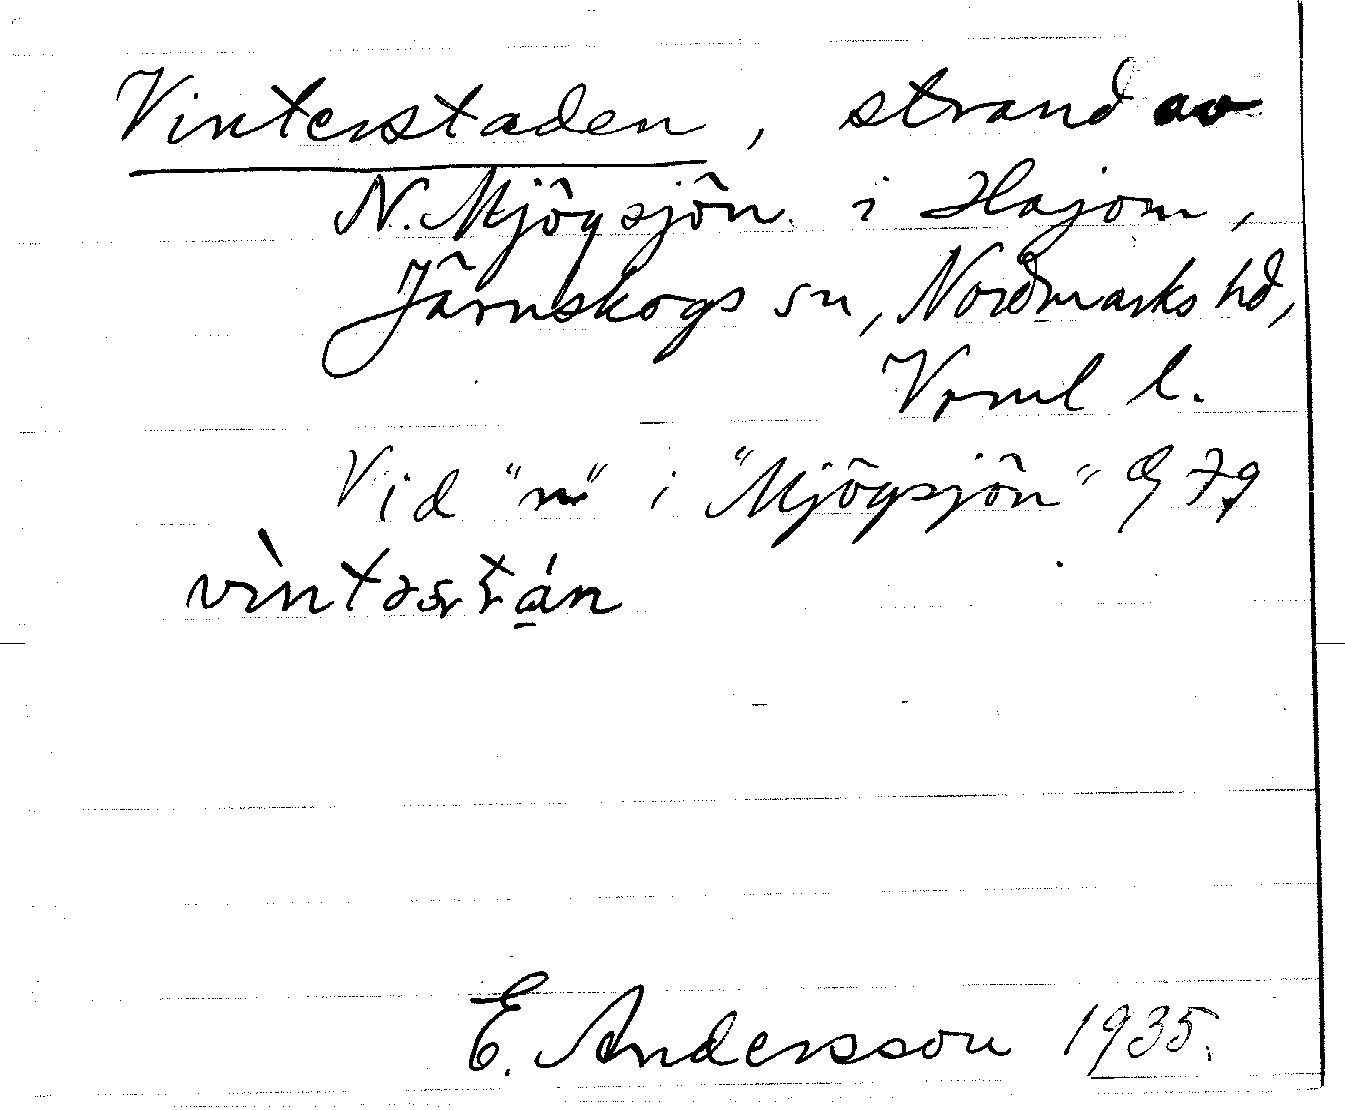 Vinterstaden, strand av
N. Mjögsjön i Hajom,
Järnskogs sn, Nordmarks hd,
Vrml l.
Vid "n" i "Mjögsjön" G 79
vìntəstán
E. Andersson 1935.